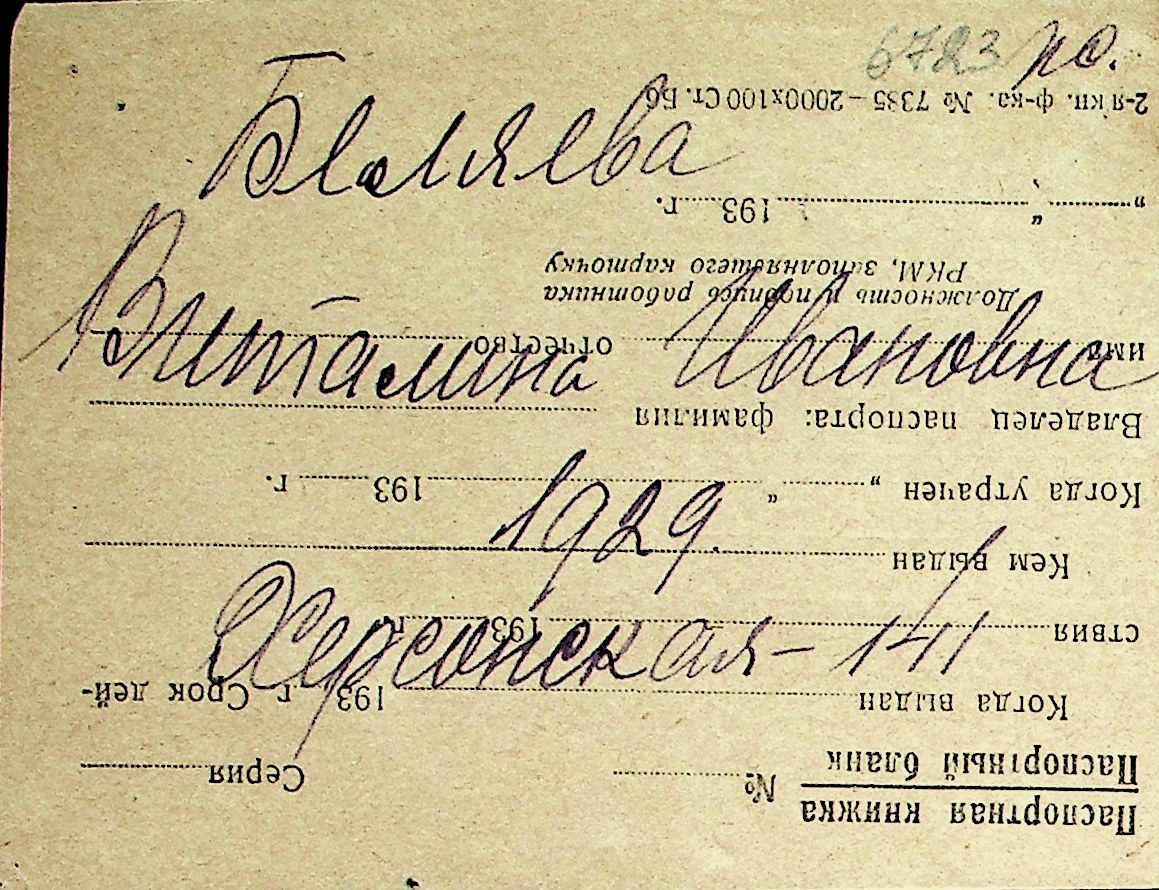 6723
Беляева
Виталина Ивановна
1929.
Херсонская - 141
Паспортная книжка
Паспортный бланк № Серия
Когда выдан 193 г. Срок дей-
ствия 193 г.
Кем выдан
Когда утрачен „ " 193 г.
Владелец паспорта: фамилия
имя отчество
Должность и подпись работника
РКМ, заполнявшего карточку
„ " 193 г.
2-я кн. ф-ка. № 7385 — 2000х100 Ст. Бб